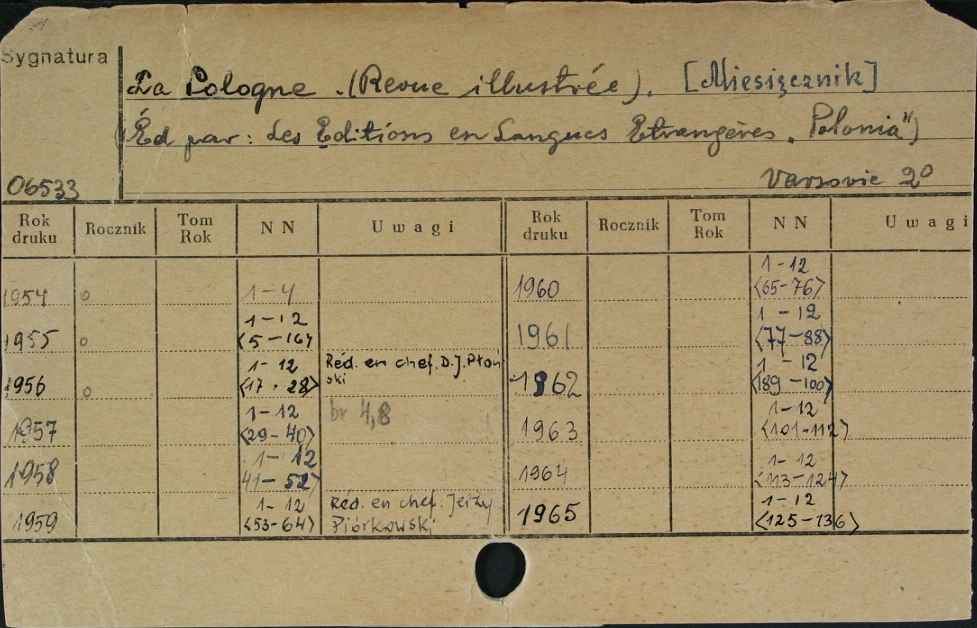 Sygnatura
La Pologne . (Revue illustrée). [Miesięcznik]
(Éd par: Les Editions en Langues Etrangères „Polonia")
06533
Varsovie 2°
Rok druku Rocznik Tom Rok NN Uwagi Rok druku Rocznik Tom Rok NN Uwagi
1954 o 1-4
1955 o 1-12 <5-16>
1956 o 1-12 <17-28> Réd. en chef. D.J.Płoński
1957 1-12 <29-40> br 4,8
1958 1-12 41-52>
1959 1-12 <53-64> Réd. en chef. Jerzy Piórkowski
1960 1-12 <65-76>
1961 1-12 <77-88>
1962 1-12 <89-100>
1963 1-12 <101-112>
1964 1-12 <113-124>
1965 1-12 <125-136>